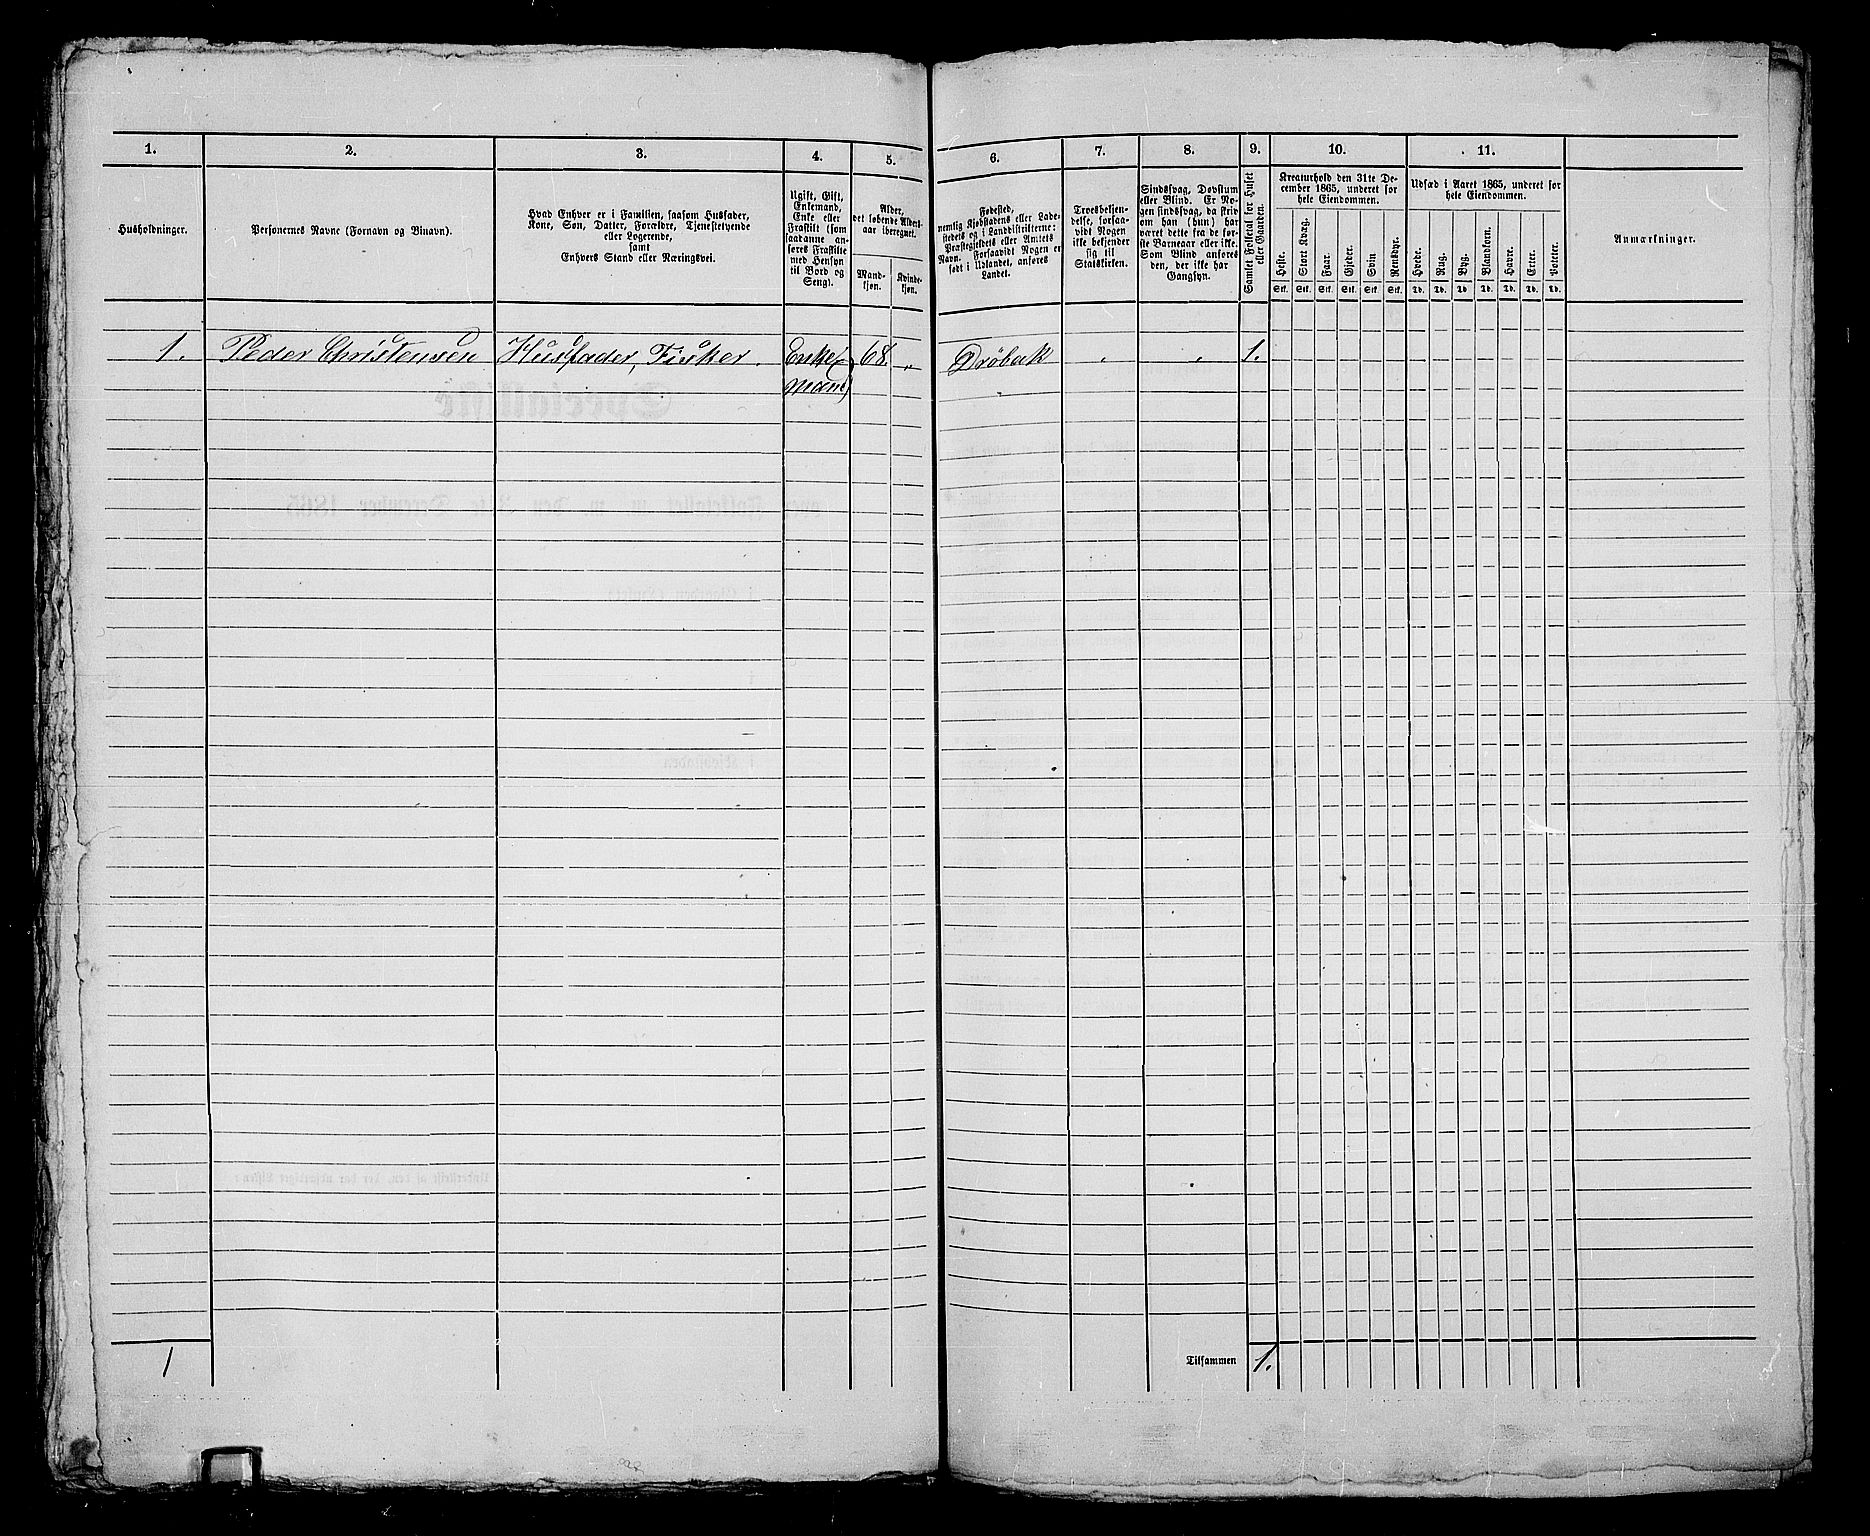 1. 2. 3. 4. 5. 6. 7. 8. 9. 10. 11.
Husholdninger.
Personernes Navne (Fornavn og Binavn).
Hvad Enhver er i Familien, saasom Husfader,
Kone, Søn, Datter, Forældre, Tjenestetyende
eller Logerende,
samt
Enhvers Stand eller Næringsvei.
Ugift, Gift,
Enkemand,
Enke eller
Fraskilt (som
saadanne an-
føres Fraskilte
med Hensyn
til Bord og
Seng).
Alder,
det løbende Alders-
aar iberegnet.
Mand-
kjøn.
Kvinde-
kjøn.
Fødested,
nemlig Kjøbstadens eller Lade-
stedets og i Landdistrikterne:
Præstegjeldets eller Amtets
Navn. Forsaavidt Nogen er
født i Udlandet, anføres
Landet.
Troesbekjen-
delse, forsaa-
vidt Nogen
ikke bekjender
sig til
Statskirken.
Sindssvag, Døvstum
eller Blind. Er No-
gen sindssvag, da skriv
om han (hun) har
været dette fra de før-
ste Barneaar eller ikke.
Som Blind anføres
den, der ikke har
Gangsyn.
Samlet Folketal for Huset
eller Gaarden.
Kreaturhold den 31te De-
cember 1865, underet for
hele Eiendommen.
Heste. Stort Kvæg. Faar. Gjeder. Svin Rensdyr.
Stk. Stk. Stk. Stk. Stk. Stk.
Udsæd i Aaret 1865, underet for
hele Eiendommen.
Hvede. Rug. Byg. Blandkorn. Havre. Erter. Poteter.
Td. Td. Td Td. Td. Td. Td.
Anmærkninger.
1. Peder Christensen Husfader, Fisker. Enke- 68. „ Drøbak „ „ 1.
mand
1 Tilsammen 1.
Specialliste
over Folketallet m. m. den 31te December 1865